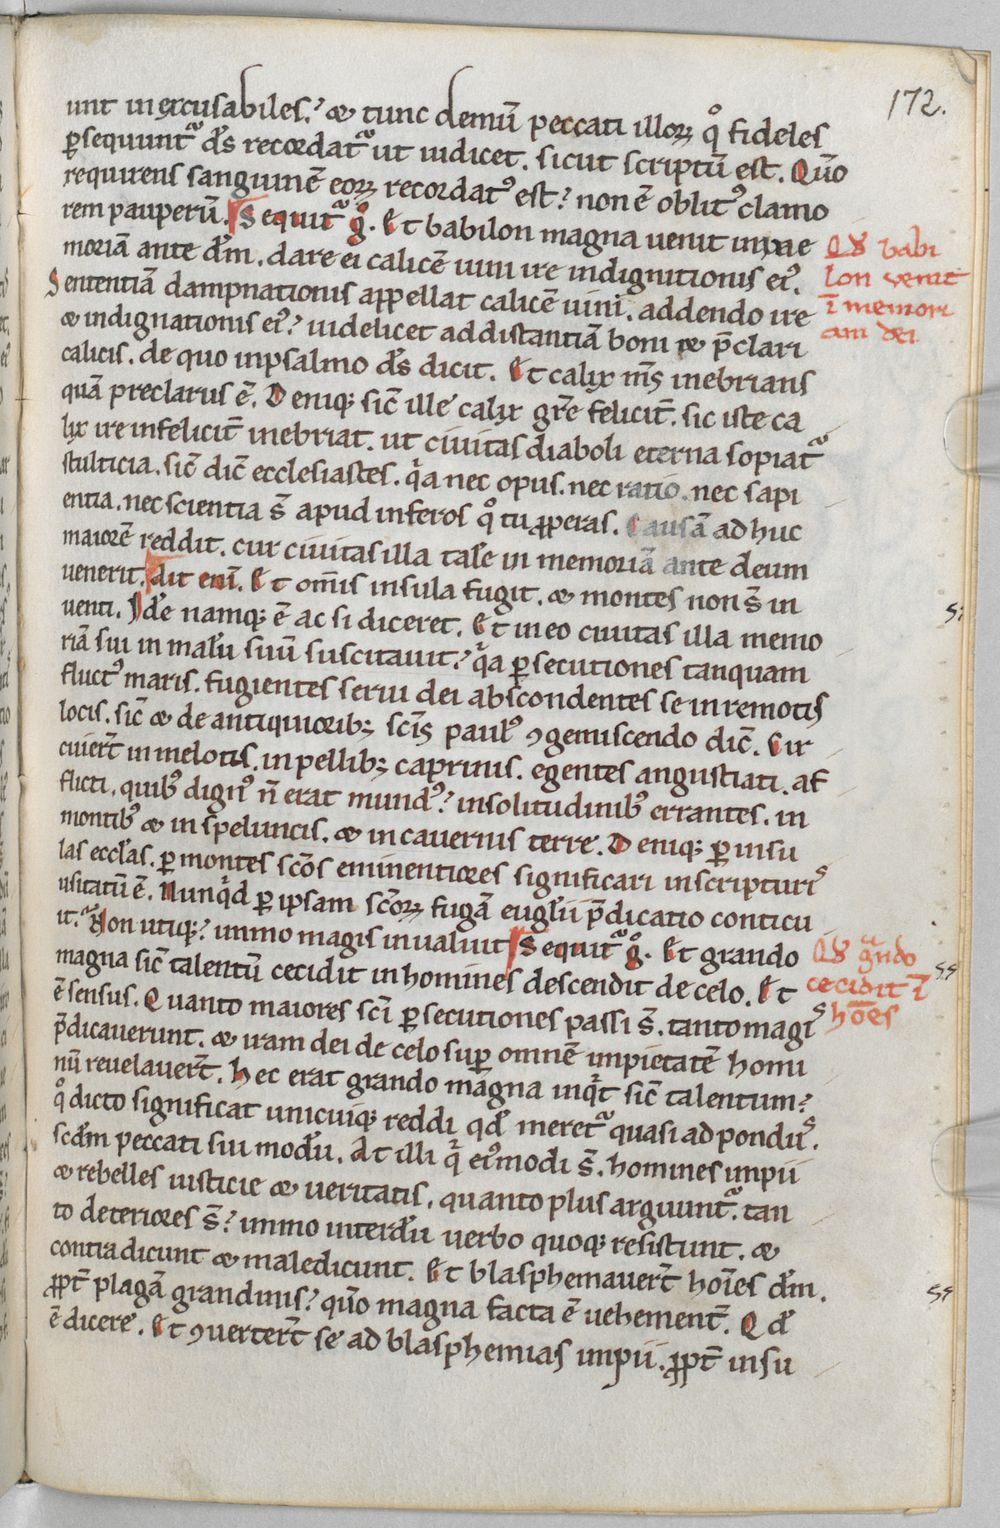 172.
unt inexcusabiles.' & tunc demū peccati illoꝝ qͦ fideles
ꝑsequuntᷓ d̄s recordatᷓ ut iudicet. sicut scriptū est. Qūo
requirens sanguinē eoꝝ recordatꝰ est.' non ē oblitꝰ clamo
rem pauperū. Sequitᷓ gͦ. Et babilon magna uenit in me
moriā ante dm̄. dare ei calicē uini ire indignitionis eiꝰ.
Sententiā dampnationis appellat calicē uini. addendo ire
& indignationis eiꝰ.' uidelicet ad distantiā boni & p̄clari
calicis. de quo in psalmo d̄s dicit. Et calix m̄s inebrians
quā preclarus ē. Deniq; sic̄ ille calix gr̄e felicit̄. sic iste ca
lix ire infelicit̄ inebriat. ut ciuitas diaboli eterna sopiatᷓ
stulticia. sic̄ dic̄ ecclesiastes. qͥa nec opus. nec ratio. nec sapi
entia. nec scientia s̄ apud inferos qͦ tu ꝓperas. Causā ad huc
maiorē reddit. cur ciuitas illa tale in memoriā ante deum
uenerit. Ait eni̅. Et om̄is insula fugit. & montes non s̄ in
uenti. Id̄e namq; ē ac si diceret. Et in eo ciuitas illa memo
riā sui in malū suū suscitauit.' qͥa ꝑsecutiones tanquam
fluctꝰ maris. fugientes serui dei abscondentes se in remotis
locis. sic̄ & de antiquiorib; sc̄s paulꝰ ꝯgemiscendo dic̄. Cir
cuier̄t in melotis. in pellib; caprinis. egentes angustiati. af
flicti. quibꝰ dignꝰ n̄ erat mundꝰ.' in solitudinibꝰ errantes. in
montibꝰ & in speluncis. & in cauernis terre. Deniq; ꝑ insu
las eccl̄as. ꝑ montes sc̄os eminentiores significari in scripturis
usitatū ē. Nunqͥd ꝑ ipsam sc̄oꝝ fugā eugl̄ii p̄dicatio conticu
it. Non utiq;.' immo magis inualuit Sequitᷓ gͦ. Et grando
magna sic̄ talentū cecidit in homines descendit de celo. Et
ē sensus. Quanto maiores sc̄i ꝑsecutiones passi s̄. tanto magis
p̄dicauerunt. & iram dei de celo suꝑ omnē impietatē homi
nū reuelauer̄t. Hec erat grando magna inqͥt sic̄ talentum.'
qͦ dicto significat unicuiq; reddi qd̄ meretᷓ quasi ad pondus.
sc̄dm peccati sui modū. At illi qͥ eiꝰmodi s̄. homines impii
& rebelles iusticie & ueritatis. quanto plus arguuntᷓ. tan
to deteriores s̄.' immo interdū uerbo quoq; resistunt. &
contradicunt & maledicunt. Et blasphemauer̄t hoi̅es dm̄.
ꝓpt̄ plagā grandinis.' qūo magna facta ē uehement̄. Qd̄
ē dicere. Et ꝯuerter̄t se ad blasphemias impii. ꝓpt̄ insu
Qd̄ babi
lon uenit
ī memori
am dei
Qd̄ gᷓndo
cecidit ī
hōēs